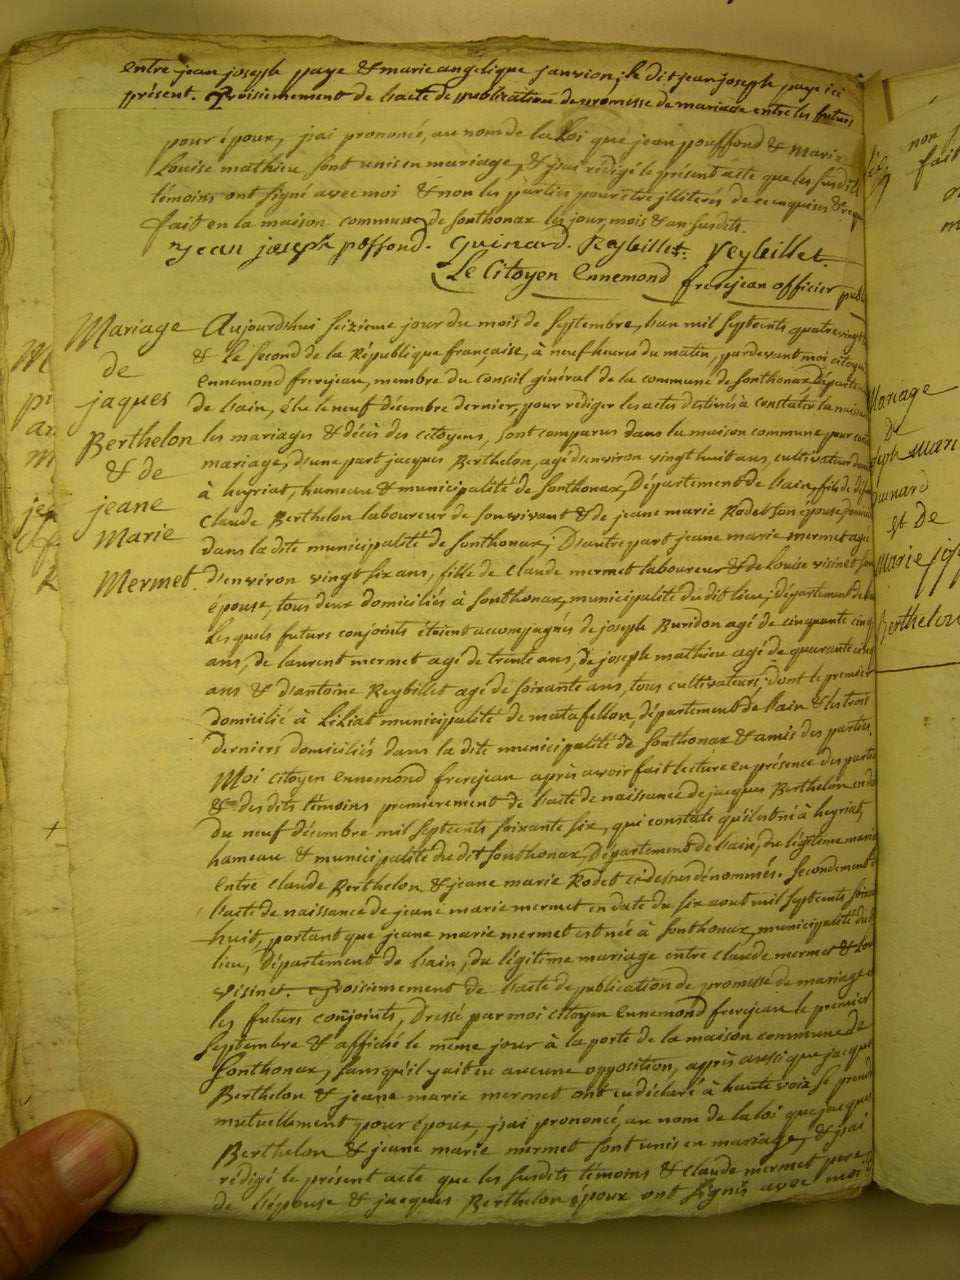 entre jean joseph paye & marie angelique janvion, le dit jean joseph paye ici
présent. Troisiemement de l'acte de publication de promesse de mariage entre les futurs
pour époux, j'ai prononcé, au nom de la Loi que jean pouffond & Marie
Louise mathieu sont unis en mariage, & j'ai rédigé le présent acte que les susdits
témoins ont signé avec moi & non les parties pour être illitérés de ce enquises &
fait en la maison commune de sonthonax les jour, mois & an susdits.
jean joseph poffond. Guinard. Reybillet. Reybillet.
Le Citoyen Ennemond frerejean officier publ
Mariage
de
jaques
Berthelon
& de
jeane
Marie
Mermet.
Aujourdhui seizieme jour du mois de septembre, l'an mil septcents quatre vingt
& le second de la République française, à neuf heures du matin, pardevant moi citoyen
Ennemond frerejean, membre du Conseil général de la commune de sonthonax Départem
de l'ain, élu le neuf décembre dernier, pour rédiger les actes destinés à constater la naissa
les mariages & décès des citoyens, sont comparus dans la maison commune pour
mariage, d'une part jacques Berthelon, agé d'environ vingt huit ans, cultivateur
à heyriat, hameau & municipalité de sonthonax, Département de l'ain, fils de
Claude Berthelon laboureur de son vivant & de jeane marie Rodet son épouse,
dans la dite municipalité de sonthonax; D'autre part jeane marie mermet agée
d'environ vingt six ans, fille de Claude mermet laboureur & de louise visinet son
épouse, tous deux domiciliés à sonthonax, municipalité du dit lieu, département de
Lesquels futurs conjoints étoient accompagnés de joseph Buridon agé de cinquante cinq
ans, de laurent mermet agé de trente ans, de joseph mathieu agé de quarante cinq
ans & d'antoine Reybillet agé de soixante ans, tous cultivateurs, dont le premier
domicilié à Liliat municipalité de matafellon, département de l'ain & les trois
derniers domiciliés dans la dite municipalité de sonthonax & amis des parties.
Moi citoyen Ennemond frerejean après avoir fait lecture en présence des parties
& des dits témoins premierement de l'acte de naissance de jacques Berthelon en date
du neuf décembre mil septcents soixante six, qui constate qu'il est né à heyriat,
hameau & municipalité du dit sonthonax, Département de l'ain, du légitime mariage
entre Claude Berthelon & jeane marie Rodet ci dessus dénommés. Secondement de
l'acte de naissance de jeane marie mermet en date du six aout mil septcents soixan
huit, portant que jeane marie mermet est née à sonthonax, municipalité du dit
lieu, Département de l'ain, du légitime mariage entre Claude mermet & Lou
visinet. Troisiemement de l'acte de publication de promesse de mariage
les futurs conjoints, Dressé par moi citoyen Ennemond frerejean le premier
septembre & affiché le même jour à la porte de la maison commune de
sonthonax, sans qu'il y ait eu aucune opposition, après aussi que jacques
Berthelon & jeane marie mermet ont eu déclaré à haute voix se prendre
mutuellement pour époux, j'ai prononcé, au nom de la loi que jacques
Berthelon & jeane marie mermet sont unis en mariage, & j'ai
rédigé le présent acte que les susdits témoins & Claude mermet pere
de l'épouse & jacques Berthelon époux ont signés avec moi
non
fait
Mariage
De
joseph Marie
Guinard
et De
Marie jos
Berthelon